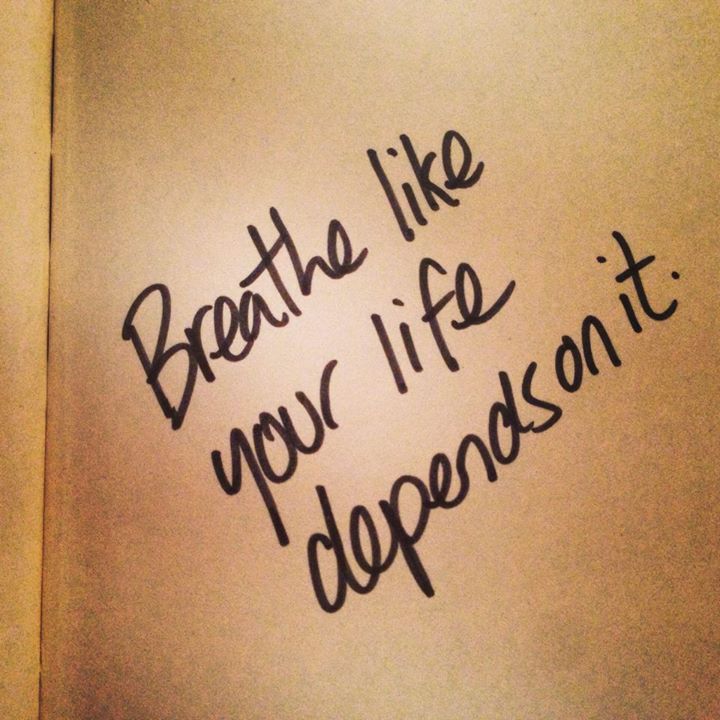 Breathe like
your life
depends on it.